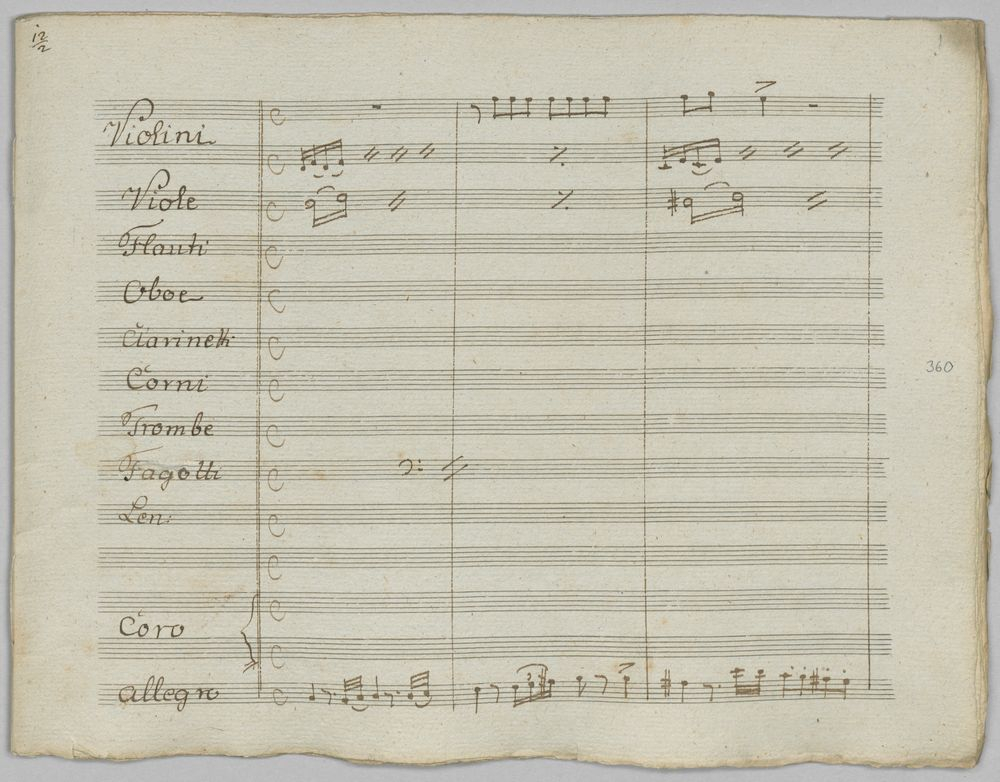 12/2
Violini
Viole
Flauti
Oboe
Clarinetti
Corni
Trombe
360
Fagotti
Len:
Coro
Allegro